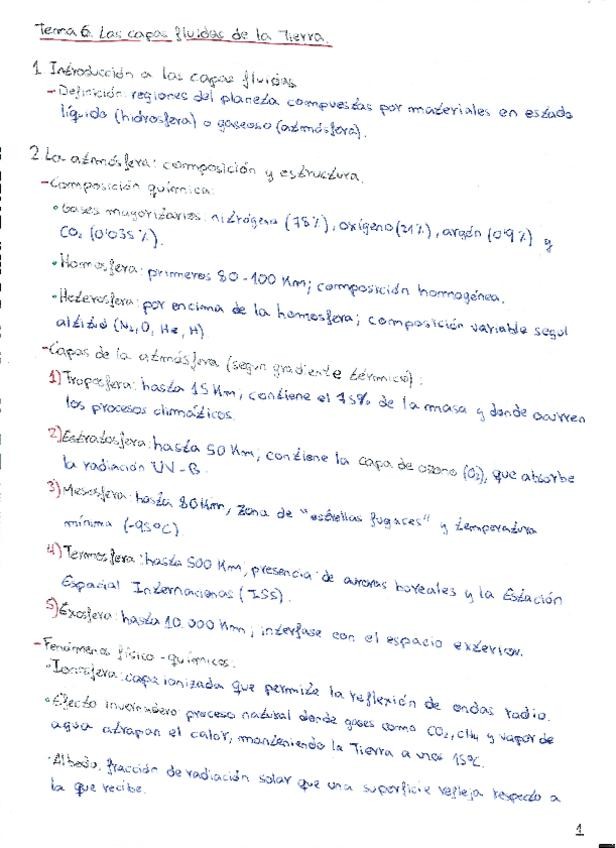 Tema 6. Las capas fluidas de la Tierra.
1 Introducción a las capas fluidas
- Definición: regiones del planeta compuestas por materiales en estado
líquido (hidrosfera) o gaseoso (atmósfera).
2 La atmósfera: composición y estructura.
- Composición química:
• Gases mayoritarios: nitrógeno (78%), oxígeno (21%), argón (0'9%) y
CO₂ (0'035%).
• Homosfera: primeros 80-100 Km; composición homogénea.
• Heterosfera: por encima de la homosfera; composición variable segul
altitud (N₂, O, He, H)
- Capas de la atmósfera (según gradiente térmico):
1) Troposfera: hasta 15 Km; contiene el 75% de la masa y donde ocurren
los procesos climáticos.
2) Estratosfera: hasta 50 Km; contiene la capa de ozono (O₂), que absorbe
la radiación UV-B.
3) Mesosfera: hasta 80 Km, zona de "estrellas fugaces" y temperatura
mínima (-95ºC)
4) Termosfera: hasta 500 Km, presencia de auroras boreales y la Estación
Espacial Internacional (ISS).
5) Exosfera: hasta 10.000 Km; interfase con el espacio exterior.
- Fenómenos físico-químicos:
• Ionosfera: capa ionizada que permite la reflexión de ondas radio.
• Efecto invernadero: proceso natural donde gases como CO₂, CH₄ y vapor de
agua atrapan el calor, manteniendo la Tierra a unos 15ºC.
• Albedo: fracción de radiación solar que una superficie refleja respecto a
la que recibe.
1